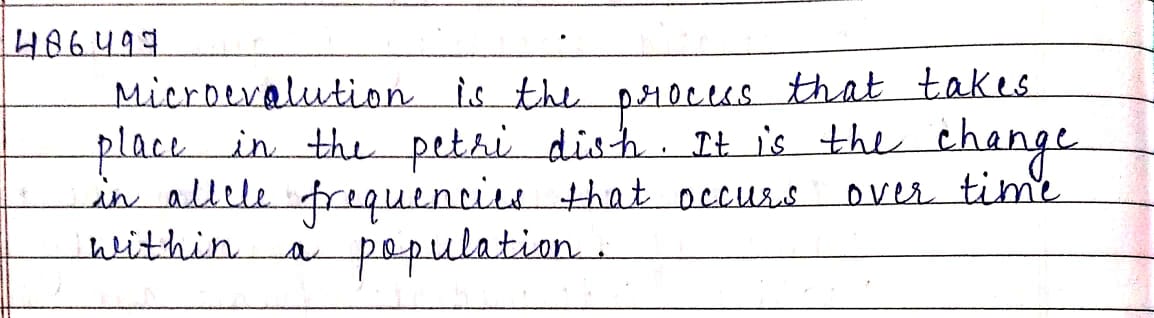 486497
Microevolution is the process that takes
place in the petri dish. It is the change
in allele frequencies that occurs over time
within a population.